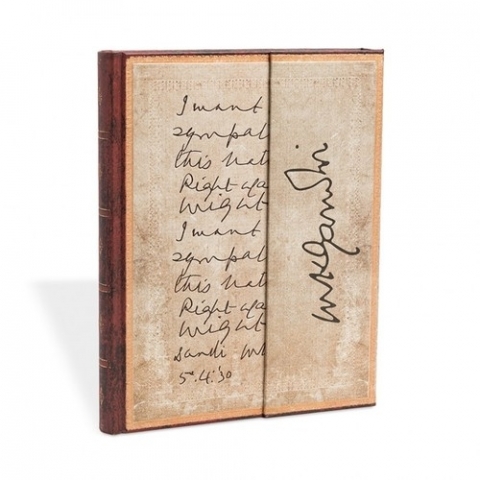 I want
sympat
this bat
Right aga
Might
I want
sympat
this bat
Right aga
Might
Dandi MK
5.4.'30
MKGandhi